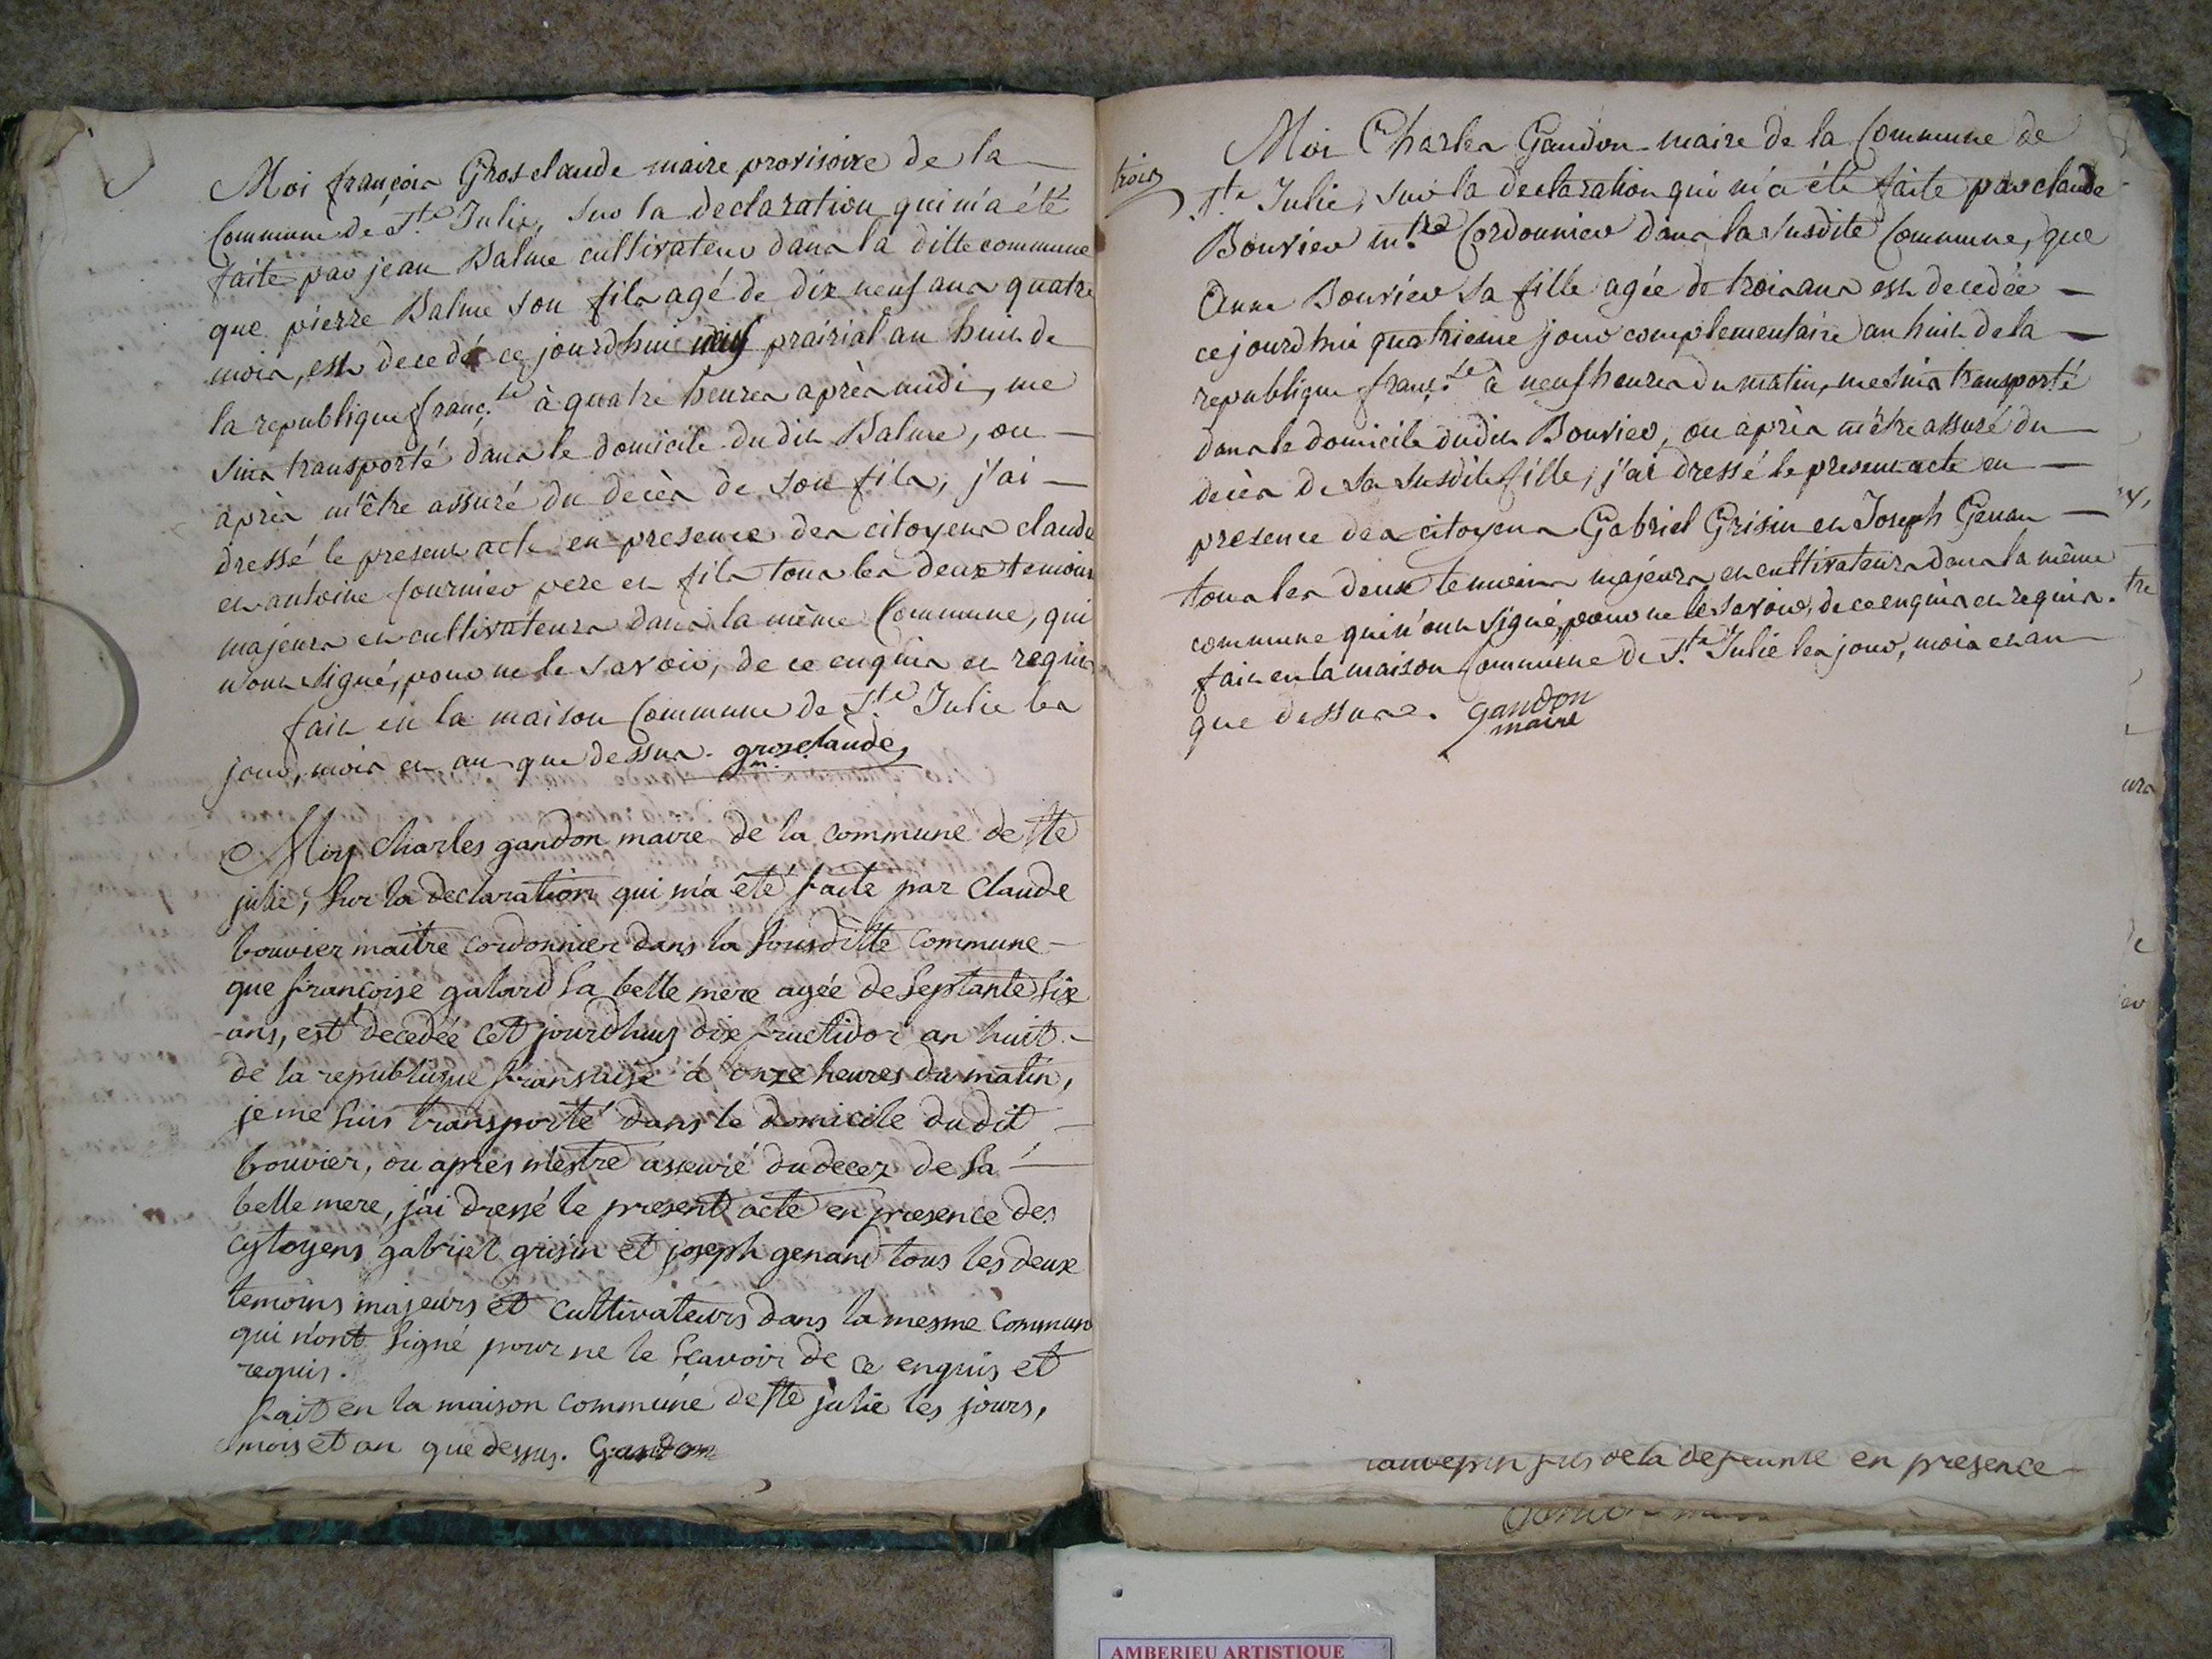 Moi françois Grosclaude maire provisoire de la
Commune de S.te Julie, sur la declaration qui m'a été
faite par jean Balme cultivateur dans la ditte commune
que pierre Balme son fils agé de dix neuf ans quatre
mois, est decedé ce jourd'hui neuf prairial an huit de
la republique franç.se à quatre heures après midi, me
suis transporté dans le domicile dudit Balme, ou
après m'être assuré du decès de son fils, j'ai
dressé le present acte en presence des citoyens claude
et antoine fournier pere et fils tous les deux temoins
majeurs et cultivateurs dans la même Commune, qui
n'ont signé, pour ne le savoir, de ce enquis et requis
fait en la maison Commune de S.te Julie les
jour, mois et an que dessus. grosclaude
m.
Moy Charles gandon maire de la commune de Ste
julie, sur la declaration qui m'a été faite par Claude
bouvier maitre cordonnier dans la sousditte commune
que françoise galard sa belle mere agée de septante six
ans, est decedée cet jourdhuy dix fructidor an huit
de la republique fransaise à onze heures du matin,
je me suis transporté dans le domicile dudit
bouvier, ou après m'estre asseuré du decez de sa
belle mere, j'ai dressé le present acte en presence des
cytoyens gabriel grisin et joseph genand tous les deux
temoins majeurs et cultivateurs dans la mesme commune
qui n'ont signé pour ne le scavoir de ce enquis et
requis.
fait en la maison commune de Ste julie les jours,
mois et an que dessus. Gandon
trois
Moi Charles Gandon maire de la Commune de
S.te Julie, sur la declaration qui m'a été faite par claude
Bouvier m.tre Cordonnier dans la susdite Commune, que
Anne Bouvier sa fille agée de trois ans est decedée
ce jourd'hui quatrieme jour complementaire an huit de la
republique franç.se à neuf heures du matin, me suis transporté
dans le domicile dudit Bouvier, ou après m'être assuré du
decès de sa susdite fille, j'ai dressé le present acte en
presence des citoyens Gabriel Grisin et Joseph Genan
tous les deux temoins majeurs et cultivateurs dans la même
commune qui n'ont signé, pour ne le savoir, de ce enquis et requis.
fait en la maison Commune de S.te Julie les jour, mois et an
que dessus. Gandon
maire
tre
urs
fils de la defeunte en presence
AMBERIEU ARTISTIQUE